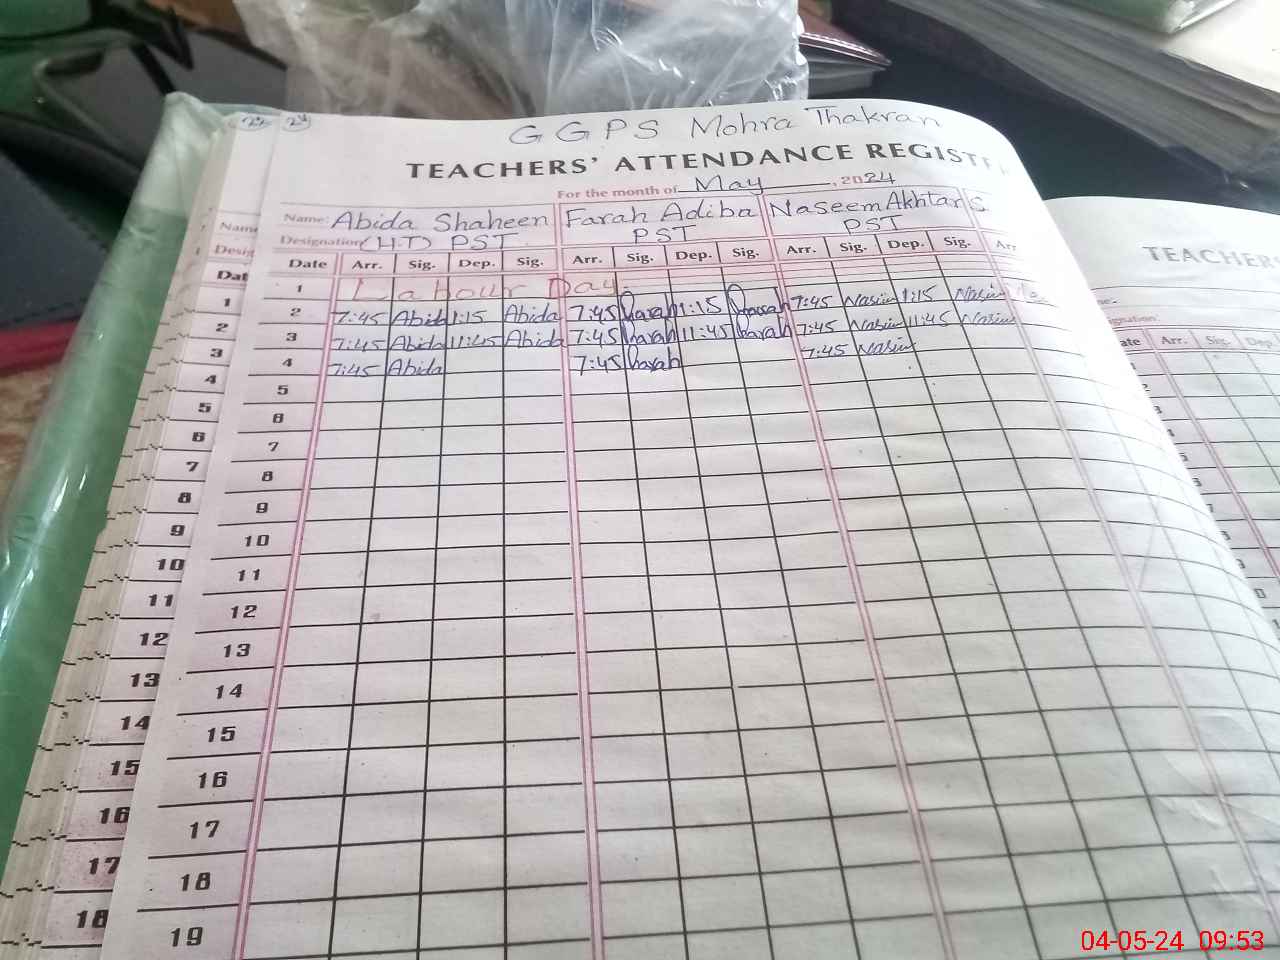 24 24
G G P S Mohra Thakran
TEACHERS' ATTENDANCE REGISTE
For the month of May, 2024
Name: Abida Shaheen Farah Adiba Naseem Akhtar S
Designation (H.T) PST PST PST
Date Arr. Sig. Dep. Sig. Arr. Sig. Dep. Sig. Arr. Sig. Dep. Sig. Arr
1 Labour Day.
2 7:45 Abida 1:15 Abida 7:45 Farah 1:15 Farah 7:45 Nasim 1:15 Nasim
3 7:45 Abida 11:45 Abida 7:45 Farah 11:45 Farah 7:45 Nasim 11:45 Nasim
4 7:45 Abida 7:45 Farah 7:45 Nasim
5
6
7
8
9
10
11
12
13
14
15
16
17
18
19
Name
Desig
Dat
1
2
3
4
5
6
7
8
9
10
11
12
13
14
15
16
17
18
TEACHERS
ate Arr. Sig. Dep
04-05-24 09:53